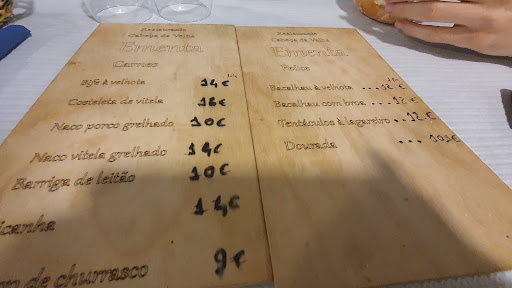 Restaurante
Cabeça da Velha
Ementa
Carnes
Bife à velhota 14€
Costeleta de vitela 16€
Naco porco grelhado 10€
Naco vitela grelhado 14€
Barriga de leitão 10€
icanha 14€
de churrasco 9€
Restaurante
Cabeça da Velha
Ementa
Peixe
Bacalhau à velhota ...12€
Bacalhau com broa ..12€
Tentáculos à lagareiro ..12€
Dourada ...